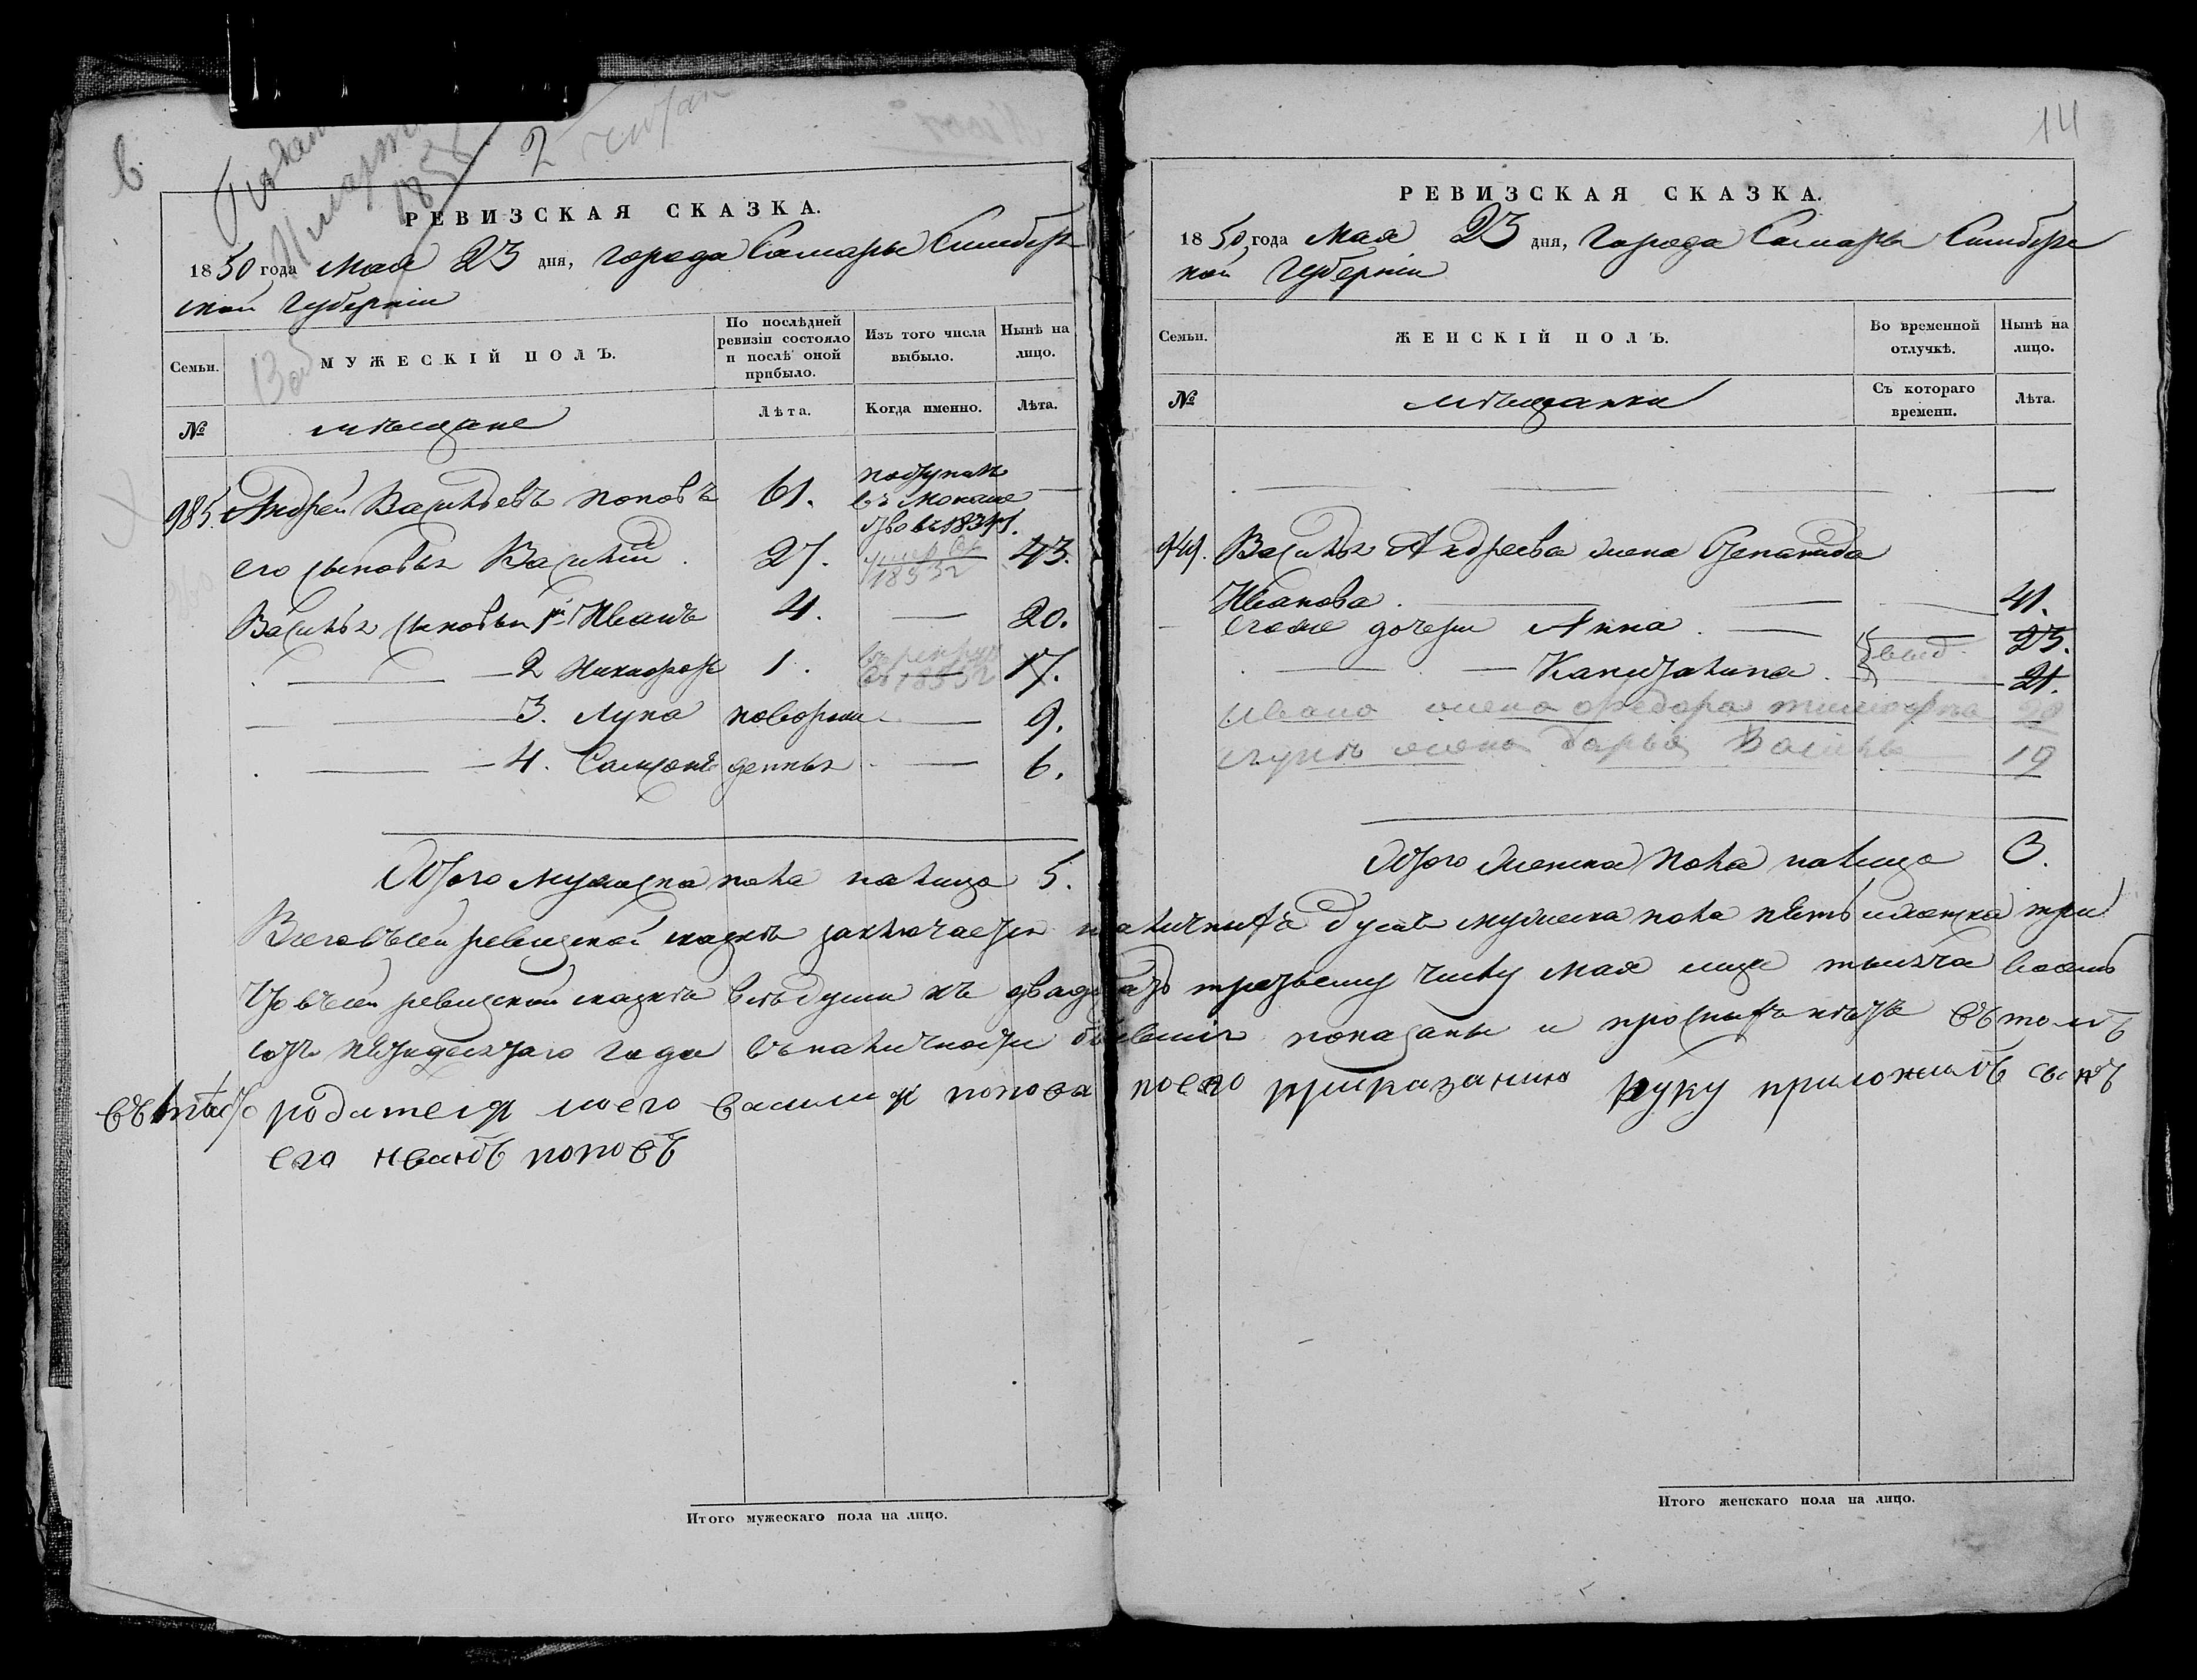 14
2
РЕВИЗСКАЯ СКАЗКА.
1850 года Мая 23 дня, города Самары Симбирс
кой Губерніи
Семьи.
МУЖЕСКІЙ ПОЛЪ.
По послѣдней ревизіи состояло и послѣ оной прибыло.
Изъ того числа выбыло.
Нынѣ на лицо.
№
мѣщане
Лѣта.
Когда именно.
Лѣта.
985. Андрей Васильевъ Поповъ 61. поступилъ
въ монаше
ство въ 1834 г.
его сыновья Василій 27. умер въ 1853 г 43.
Василья сыновья 1й Иванъ 4. — 20.
2 Никифоръ 1. въ рекруты 17.
3. Лука новорож — 9.
4. Самсонъ денныя — 6.
Итого мужеска пола на лицо 5.
РЕВИЗСКАЯ СКАЗКА.
1850 года Мая 23 дня, города Самары Симбирс
кой Губерніи
Семьи.
ЖЕНСКІЙ ПОЛЪ.
Во временной отлучкѣ.
Нынѣ на лицо.
№
мѣщанки
Съ котораго времени.
Лѣта.
949. Василья Андреева жена Степанида
Иванова 41.
его же дочери Анна 23.
Капиталина выд. 21.
Ивана жена Федора Тимофѣева 20
Луки жена Дарья Василь 19
Итого женска пола на лицо 3.
Всего въ сей ревизской сказкѣ заключается наличныхъ душъ мужеска пола пять и женска три
Что въ сей ревизской сказкѣ всѣ души къ двадцать третьему числу Мая мца тысяча восемь
сотъ пятидесятаго года въ наличности бывшія показаны и прописныхъ нѣтъ въ томъ
въ мѣсто родителя моего василия попова по его приказанию руку приложилъ сынъ
его иванъ поповъ
Итого мужескаго пола на лицо.
Итого женскаго пола на лицо.